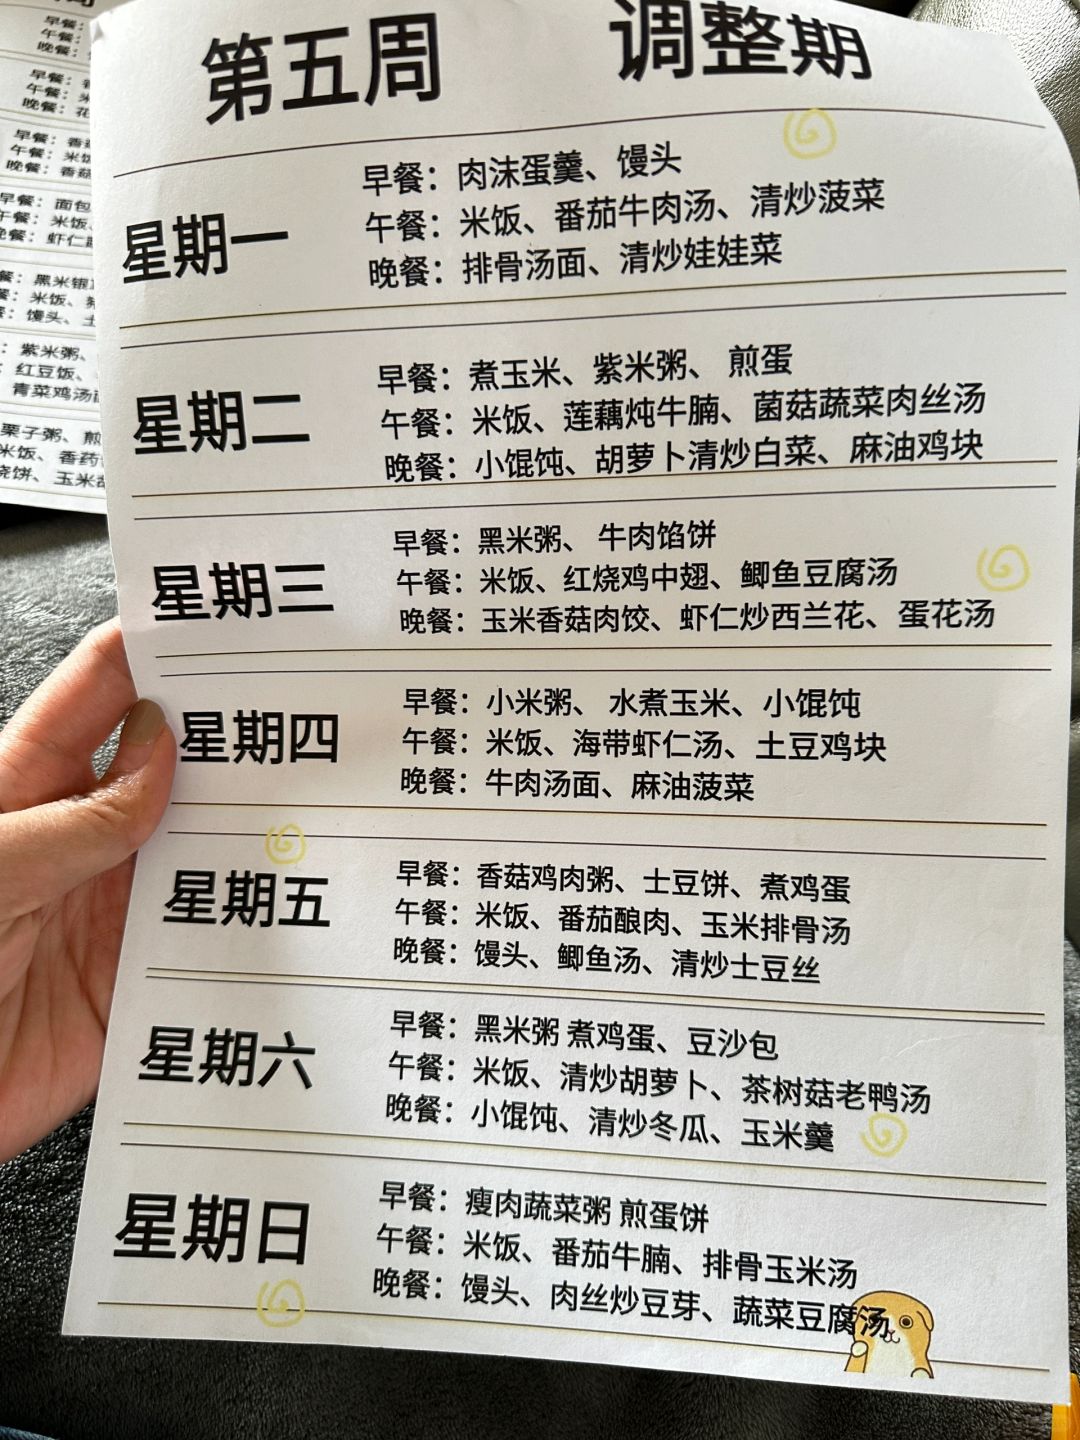 第五周 调整期
星期一
早餐：肉沫蛋羹、馒头
午餐：米饭、番茄牛肉汤、清炒菠菜
晚餐：排骨汤面、清炒娃娃菜
星期二
早餐：煮玉米、紫米粥、 煎蛋
午餐：米饭、莲藕炖牛腩、菌菇蔬菜肉丝汤
晚餐：小馄饨、胡萝卜清炒白菜、麻油鸡块
星期三
早餐：黑米粥、 牛肉馅饼
午餐：米饭、红烧鸡中翅、鲫鱼豆腐汤
晚餐：玉米香菇肉饺、虾仁炒西兰花、蛋花汤
星期四
早餐：小米粥、 水煮玉米、小馄饨
午餐：米饭、海带虾仁汤、土豆鸡块
晚餐：牛肉汤面、麻油菠菜
星期五
早餐：香菇鸡肉粥、士豆饼、煮鸡蛋
午餐：米饭、番茄酿肉、玉米排骨汤
晚餐：馒头、鲫鱼汤、清炒士豆丝
星期六
早餐：黑米粥 煮鸡蛋、豆沙包
午餐：米饭、清炒胡萝卜、茶树菇老鸭汤
晚餐：小馄饨、清炒冬瓜、玉米羹
星期日
早餐：瘦肉蔬菜粥 煎蛋饼
午餐：米饭、番茄牛腩、排骨玉米汤
晚餐：馒头、肉丝炒豆芽、蔬菜豆腐汤
早餐：
午餐：
晚餐：
早餐：
午餐：
晚餐：花
早餐：香
午餐：米饭
晚餐：香菇
早餐：面包
午餐：米饭、
晚餐：虾仁
餐：黑米银
餐：米饭、
：馒头、土
：紫米粥、
：红豆饭、
青菜鸡汤
栗子粥、煎
米饭、香药
烧饼、玉米